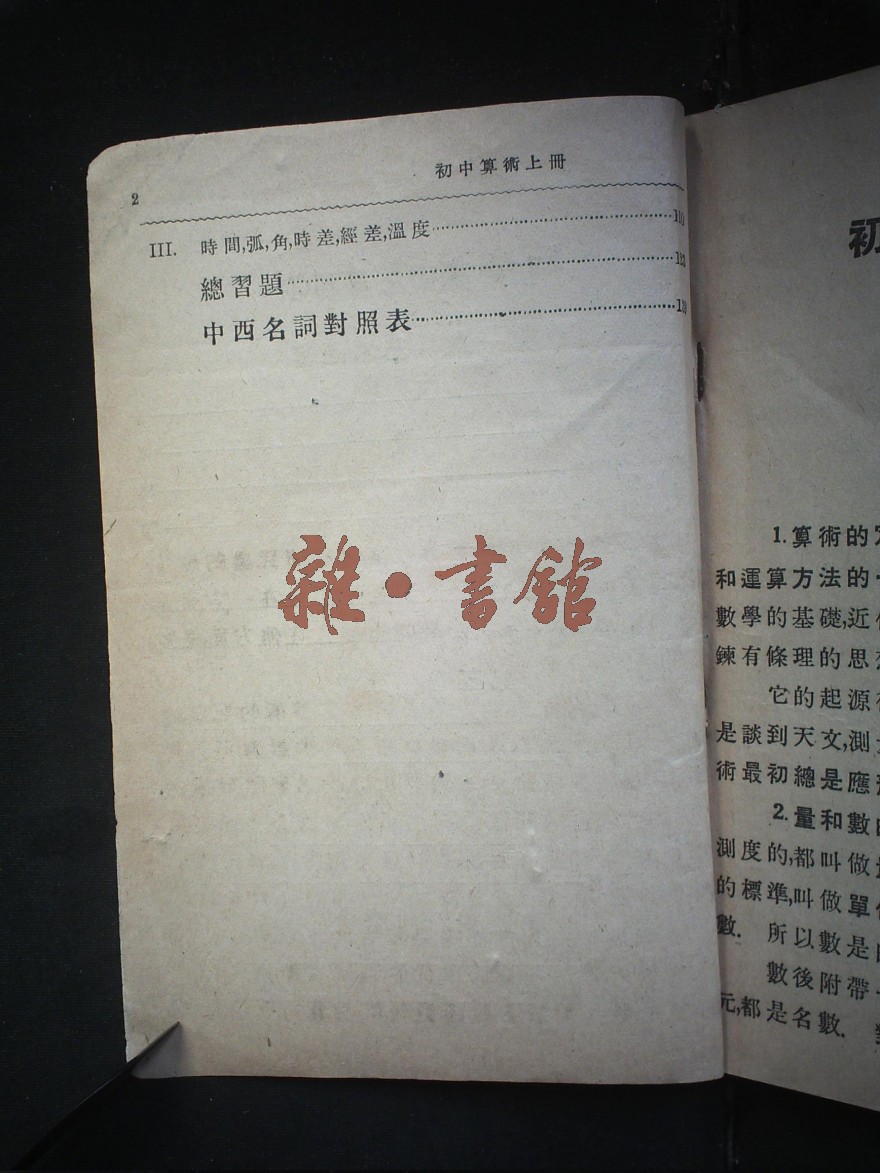 2
初中算術上冊
III. 時間,弧,角,時差,經差,溫度……110
總習題……
中西名詞對照表……
雜·書館
初
1. 算術的
和運算方法的
數學的基礎,近
鍊有條理的思
它的起源
是談到天文,測
術最初總是應
2. 量和數
測度的,都叫做
的標準,叫做單
數. 所以數是
數後附帶
元,都是名數.